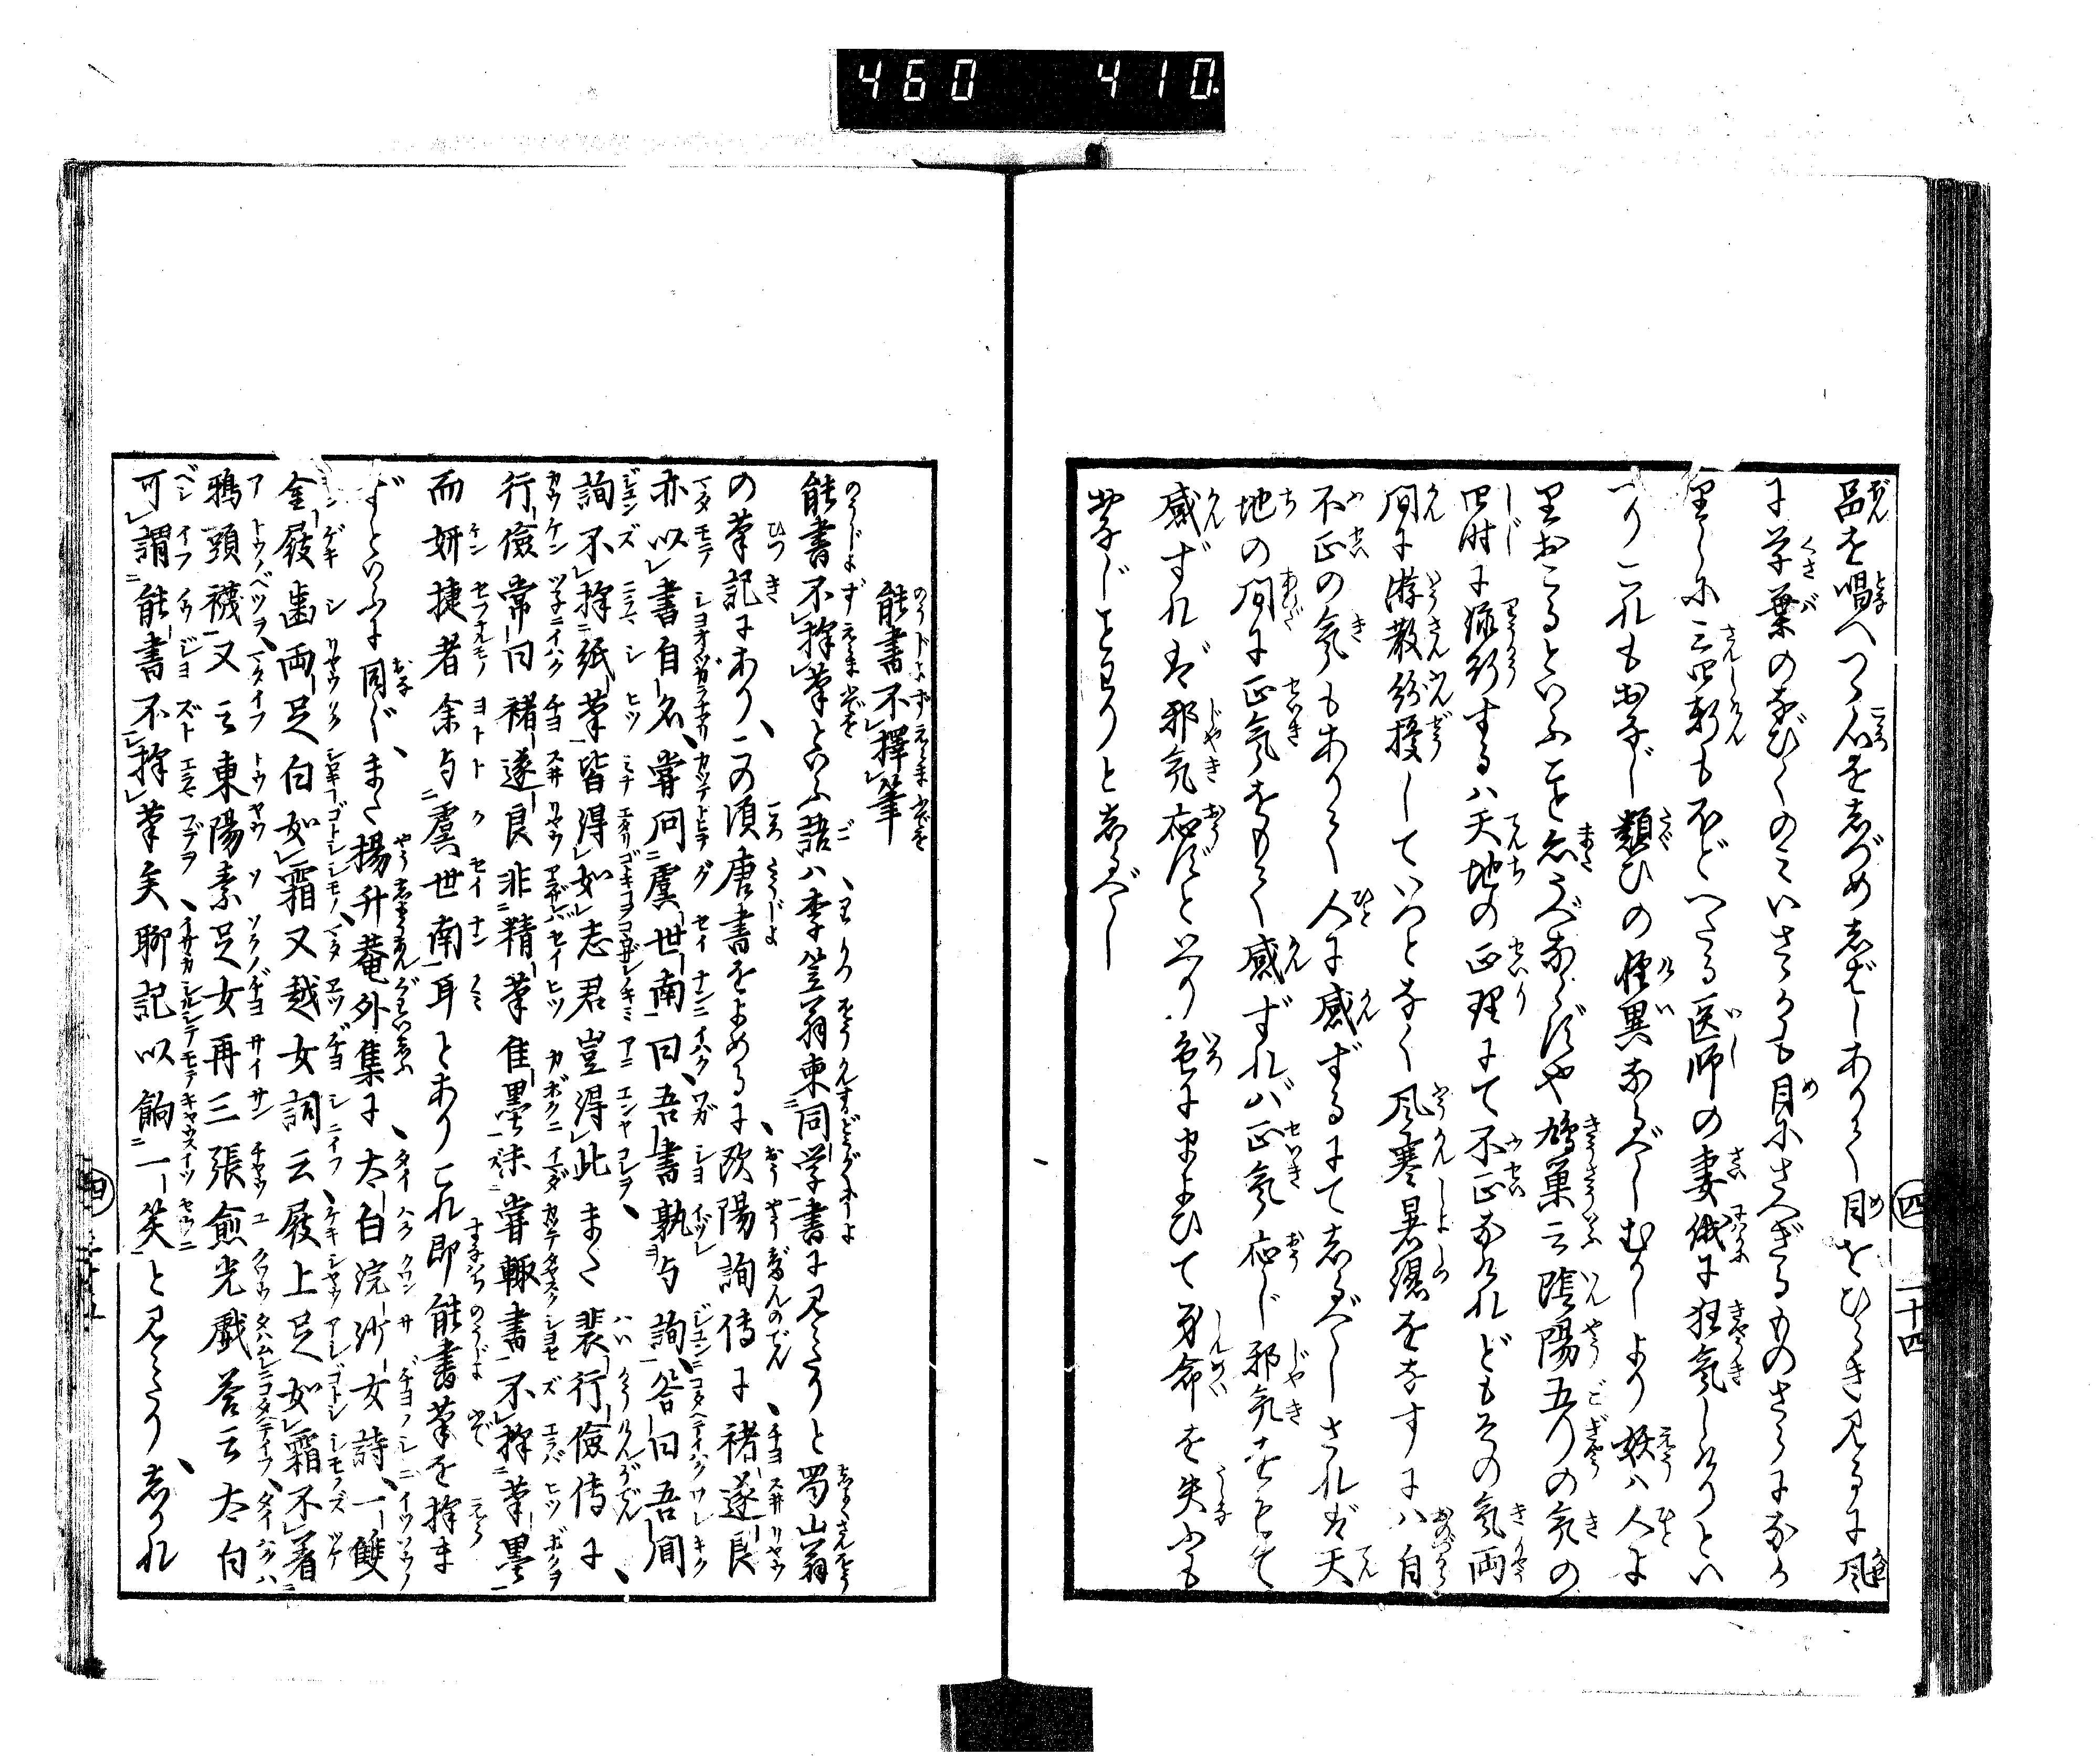 460 410
品を唱へつゝ心をしづめしばしありて目をひらき見るに風
に草葉のなびくのみいさゝかも目にさへぎるものさらになか
里しに三四軒もほどへたる医師の妻俄に狂気しけりとい
へりこれもおなじ類ひの怪異なるべしむかしより妖ハ人よ
里おこるといふ
四時に流行するハ天地の正理にて不正なけれどもその気両
間に游散紛擾していつとなく風寒暑湿をなすにハ自
不正の気もありて人に感ずるにてしるべしされバ天
地の間に正気をもて感ずれバ正気応じ邪気をもて
感ずれバ邪気応ずといへり色にまよひて身命を失ふも
おなじことわりとしるべし
四 二十四
能書不擇筆
能書不择筆といふ語ハ李笠翁東同学書に見えたりと蜀山翁
の筆記にあり、この頃唐書をよめるに、欧陽詢伝に、褚遂良
亦以書自名、嘗問虞世南曰、吾書孰与詢、答曰吾聞
詢不择紙筆皆得如志君豈得此、また裴行儉伝に、
行儉常曰褚遂良非精筆佳墨未嘗輙書、不择筆墨
而妍捷者余与虞世南耳とあり、これ即能書筆を择ま
ずといふに同じ、また楊升菴外集に、太白浣沙女詩、一雙
金屐歯両足白如霜、又越女詞云屐上足如霜不著
鴉頭襪、又云東陽素足女再三張愈光戯答云、太白
可謂能書不择筆矣、聊記以餉一笑と見えたり、しかれ